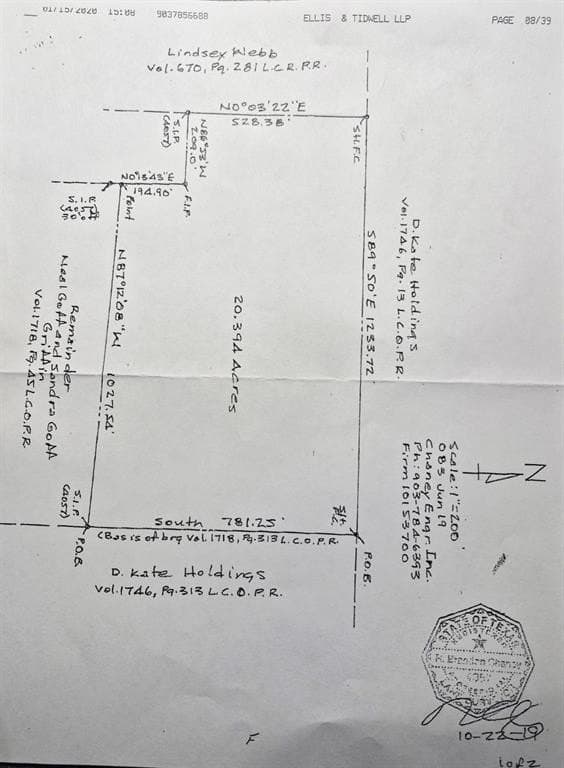 01/15/2020 15:08 9037856688 ELLIS & TIDWELL LLP PAGE 08/39
Lindsey Webb
Vol. 670, Pg. 281 L.C.R.P.R.
N0°03'22"E
528.38'
S.I.P.
(4057)
N86°53'W
209.0'
S.H.F.C.
N0°13'43"E
194.90'
F.I.P.
Point
D. Kate Holdings
Vol. 1746, Pg. 13 L.C.O.P.R.
S89°50'E 1233.72'
20.394 Acres
N87°12'08"W 1027.54'
Remainder
Neal Goff and Sandra Goff
Griffin
Vol. 1718, Pg. 45 L.C.O.P.R.
Scale: 1"=200'
083 Jun 19
Chaney Engr. Inc.
Ph: 903-784-6393
Firm 10153700
N
S.I.P.
(4057)
P.O.B.
South 781.25'
(Basis of brg Vol. 1718, Pg. 313 L.C.O.P.R.
P.O.B.
D. Kate Holdings
Vol. 1746, Pg. 313 L.C.O.P.R.
STATE OF TEXAS
REGISTERED
R. Brendon Chaney
4057
10-22-19
F
1 of 2